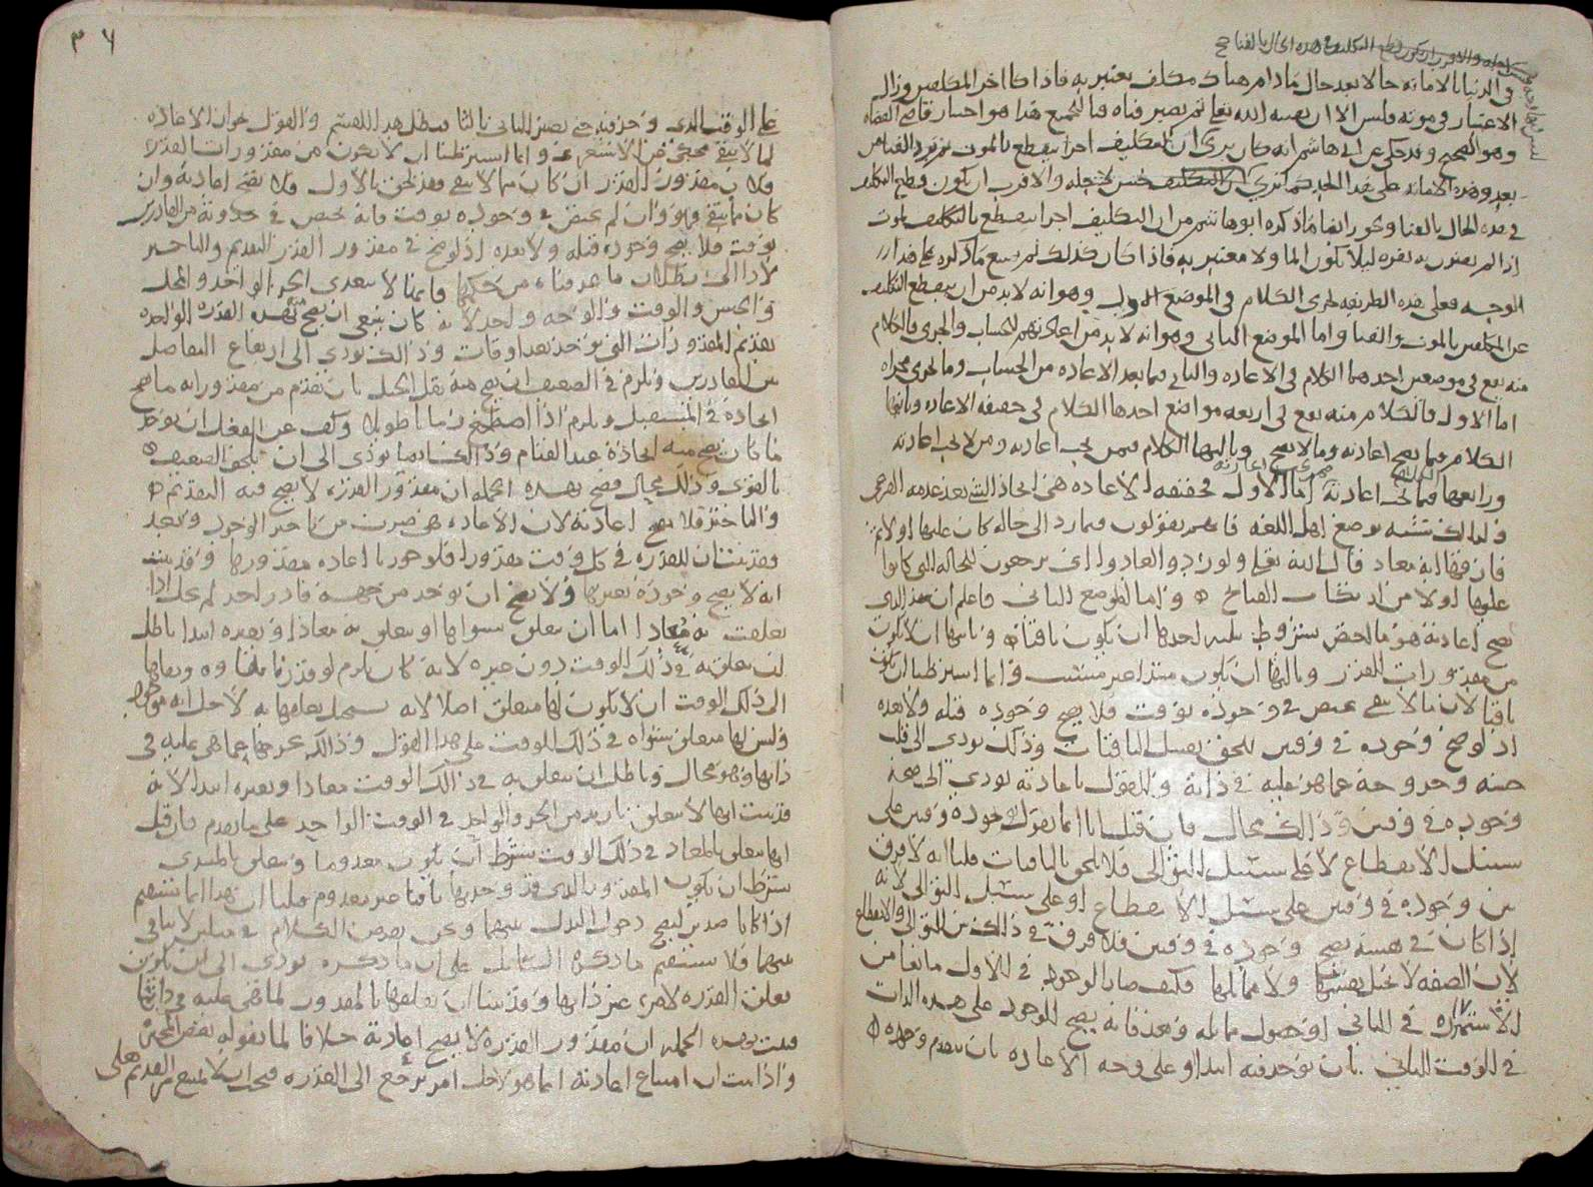 في الدنيا بالاماته حالا بعد حال مادام هناك مكلف يعتبر به فاذا كان اخر المكلفين وزال
الاعتبار في موته فليس الا ان يفنيه الله تعالى ثم يصير فناه فنا للجميع هذا هو اختيار قاضي القضاه
وهو الصحيح وقد حكي عن ابي هاشم انه كان يرى ان التكليف اجرا ينقطع بالموت ثم يرد الفنا من
بعد وهذه الاماته على هذا الحد
في هذه الحال بالفنا ويجوز ايضا ماذكره ابوهاشم من ان التكليف اجرا ينقطع بالتكليف بموت
اذا لم يعتبر به غيره ليلا يكون الما ولا معتبر به فاذا كان كذلك لم يمتنع ما ذكره على هذا
الوجه فعلى هذه الطريقه يجري الكلام في الموضع الاول وهو انه لا بد من ان ينقطع التكليف
عن المكلفين بالموت والفنا واما الموضع الثاني وهو انه لا بد من اعادتهم للحساب والجزى فالكلام
منه يقع في موضعين احدهما الكلام في الاعاده والثاني فيما بعد الاعاده من الحساب وما يجري مجراه
اما الاول فالكلام منه يقع في اربعه مواضع احدها الكلام في حقيقه الاعاده وثانيها
الكلام فيما يصح اعادته وما لا يصح وثالثها الكلام فيمن يجب اعادته ومن لا يجب اعادته
ورابعها فيما يجب اعادته اما الاول فحقيقه الاعاده هي ايجاد الشي بعد عدمه
ولذلك يشبه بوضع اهل اللغه فانهم يقولون فيما رد الى حاله كان عليها اولا ثم
فارقها انه معاد قال الله تعالى ولو ردوا لعادوا اي يرجعون للحاله التي كانوا
عليها اولا من ارتكاب القبايح واما الموضع الثاني فاعلم ان هذا الذي
يصح اعادته هو ما اختص بشروط ثلاثه احدها ان يكون باقيا وثانيها ان لا يكون
من مقدورات القدر وثالثها ان يكون مبتدا غير مسبب وانما اشترطنا ان يكون
باقيا لان ما لا يبقى يختص في وجوده بوقت فلا يصح وجوده قبله ولا بعده
اذ لو صح وجوده في وقتين للحق بقبيل الباقيات وذلك يودي الى قلب
جنسه وخروجه عما هو عليه في ذاته والقول باعادته يودي الى صحة
وجوده في وقتين وذلك محال فان قيل انا انما نقول بوجوده في وقتين على
سبيل الانقطاع لا على سبيل التوالي فلا يلحق بالباقيات قلنا انه لا فرق
بين وجوده في وقتين على سبيل الانقطاع او على سبيل التوالي لانه
اذا كان في نفسه يصح وجوده في وقتين فلا فرق في ذلك بين التوالي والانقطاع
لان الصفه لا تحيل نفسها ولا مماثلها فكيف صار الوجود في الاول مانعا من
الاستمرار في الثاني او حصول مماثله وبعد فانه يصح الوجود على هذه الذات
في الوقت الثاني بان يوجد فيه ابتدا او على وجه الاعاده بان يتقدم وجوده
٣٦
على الوقت الذي وجد فيه حتى يصير الثاني ثالثا فبطل هذا التقسيم والقول بجواز الاعاده
لما لا يبقى محكي عن الاشعريه وانما اشترطنا ان لا يكون من مقدورات القدره
فلان مقدور القدر ان كان مما لا يبقى فقد لحق بالاول ولا يصح اعادته وان
كان مما يبقى فهو وان لم يختص في وجوده بوقت فانه يختص في حدوثه من القادر
بوقت فلا يصح وجوده قبله ولا بعده اذ لو صح في مقدور القدر التقديم والتاخير
لادى الى بطلان ما عرفناه من حكمها فانها لا تتعدى الجزء الواحد والمحل
والجنس والوقت والوجه واحد لانه كان ينبغي ان يصح بهذه القدره الواحده
تقديم المقدورات التي توجد بعد اوقات وذلك يودي الى ارتفاع التفاضل
بين القادرين ويلزم في الضعيف ان يصح منه نقل الجبل بان يقدم من مقدوراته ما صح
ايجاده في المستقبل ويلزم اذا اضطجع زمانا طويلا وكف عن الفعل ان يوجد
ما كان يصح منه ايجاده عند القيام وذلك ايضا يودي الى ان يلحق الضعيف
بالقوى وذلك محال فصح بهذه الجمله ان مقدور القدره لا يصح فيه التقديم
والتاخير فلا يصح اعادته لان الاعاده هي ضرب من تاخير الوجود وبعد
فقد بينا ان للقدره في كل وقت مقدورا فلو جوزنا اعاده مقدورها وقد بينا
انه لا يصح وجوده بغيرها ولا يصح ان يوجد من جهه قادر اخر لم يخل اذا
تعلقت به معادا اما ان يتعلق بسواها او يتعلق به معادا وبغيره ابتدا باطل
ان يتعلق به في ذلك الوقت دون غيره لانه كان يلزم لو قدرنا بقاه وبقاها
الى ذلك الوقت ان لا يكون لها متعلق اصلا لانه يستحيل تعلقها به لاجل انه موجود
وليس لها متعلق سواه في ذلك الوقت على هذا القول وذلك يخرجها عما هي عليه في
ذاتها وهو محال وباطل ان يتعلق به في ذلك الوقت معادا وبغيره ابتدا لانه
قد بينا انها لا تتعلق بازيد من الجزء الواحد في الوقت الواحد على ما تقدم فان قيل
انها تتعلق بالمعاد في ذلك الوقت بشرط ان يكون معدوما وتتعلق بالمبتدى
بشرط ان يكون المقدور الذي قد وجد بها باقيا غير معدوم قلنا ان هذا انما يستقيم
اذا كانا ضدين ليصح دخول البدل بينهما ونحن نفرض الكلام في مثلين لا تنافي
بينهما فلا يستقيم ما ذكره السايل على ان ما ذكره يودي الى ان يكون
تعلق القدره لامر غير ذاتها وقد بينا ان تعلقها بالمقدور لما هي عليه في ذاتها
فثبت بهذه الجمله ان مقدور القدره لا يصح اعادته خلافا لما يقوله بعض
واذا ثبت ان امتناع اعادته انما هو لاجل امر يرجع الى القدره فيجب ان لا يمتنع من القديم تعالى